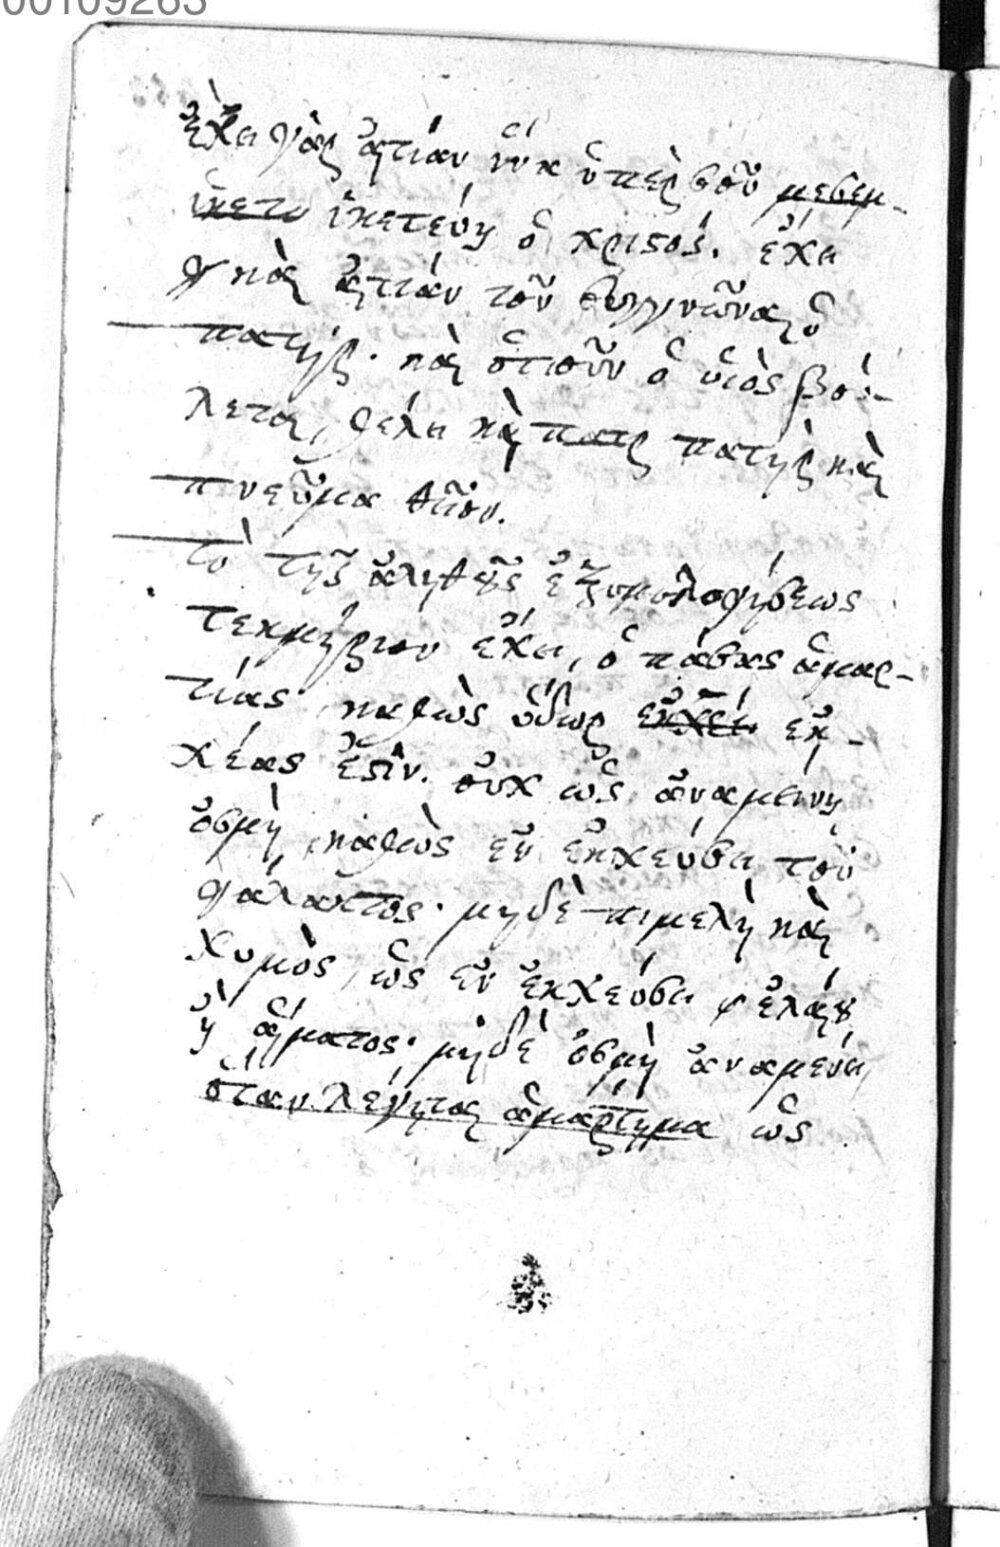 00109263
ἔχει γὰρ αἰτίαν ἵνα ὑπὲρ σοῦ μεσεμ-
ἱκετευ ἱκετεύῃ ὁ χριστός. ἔχει
καὶ αἰτίαν τοῦ συγγνῶναι ὁ
πατὴρ. καὶ ὅτιοῦν ὁ υἱὸς βού-
λεται, θέλει καὶ πατρ πατὴρ καὶ
πνεῦμα θεῖον.
τὸ τῆς ἀληθοῦς ἐξομολογήσεως
τεκμήριον ἔχει, ὁ πάσας ἁμαρ-
τίας καθὼς ὕδωρ ἐκχέει ἐκ-
χέας ἐστίν. οὐχ ὡς ἀναμείνῃ
ὀσμὴ, καθὼς ἐν ἐκχεύσει τοῦ
γάλακτος. μηδὲ πιμελὴ καὶ
χυμὸς, ὡς ἐν ἐκχεύσει ἐλαίου
ἢ αἵματος. μηδὲ ὀσμὴ ἀναμένει,
ὅταν λέγηται ἁμάρτημα ὡς